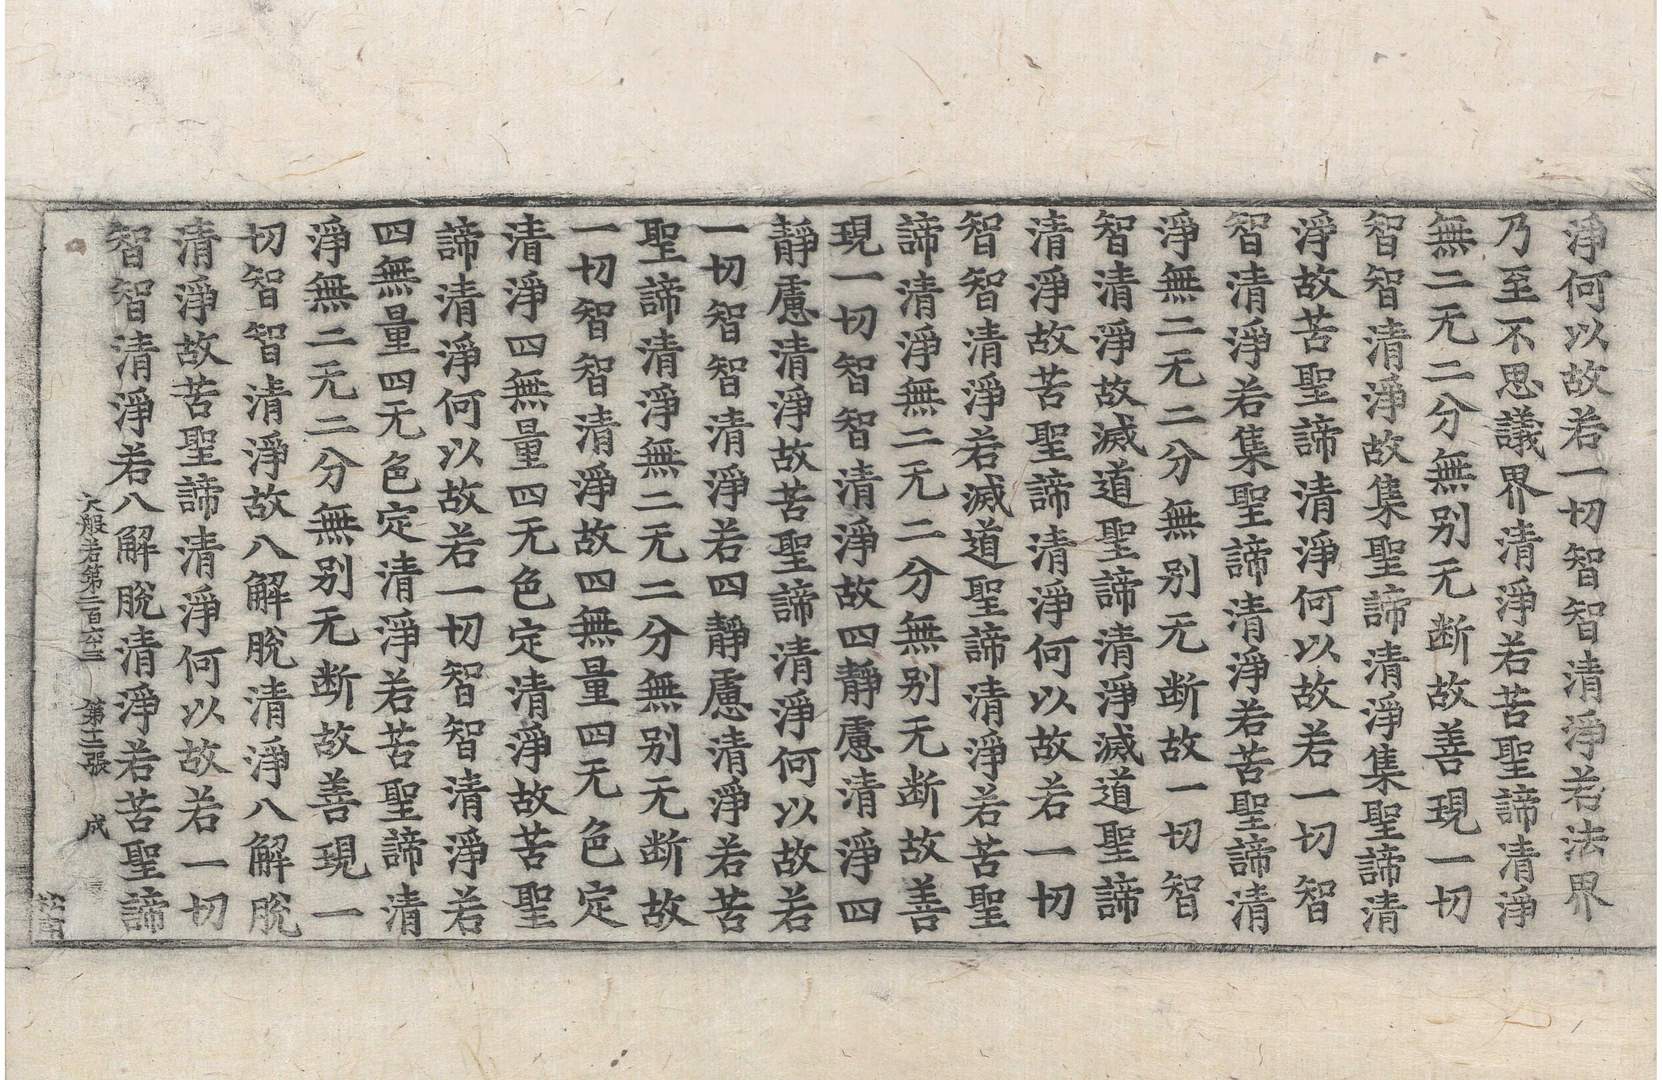 淨何以故若一切智智清淨若法界
乃至不思議界清淨若苦聖諦清淨
無二无二分無别无断故善現一切
智智清淨故集聖諦清淨集聖諦清
淨故苦聖諦清淨何以故若一切智
智清淨若集聖諦清淨若苦聖諦清
淨無二无二分無别无断故一切智
智清淨故滅道聖諦清淨滅道聖諦
清淨故苦聖諦清淨何以故若一切
智智清淨若滅道聖諦清淨若苦聖
諦清淨無二无二分無别无断故善
現一切智智清淨故四靜慮清淨四
靜慮清淨故苦聖諦清淨何以故若
一切智智清淨若四靜慮清淨若苦
聖諦清淨無二无二分無别无断故
一切智智清淨故四無量四无色定
清淨四無量四无色定清淨故苦聖
諦清淨何以故若一切智智清淨若
四無量四无色定清淨若苦聖諦清
淨無二无二分無别无断故善現一
切智智清淨故八解脫清淨八解脫
清淨故苦聖諦清淨何以故若一切
智智清淨若八解脫清淨若苦聖諦
大般若第二百六十三 第十二張 成